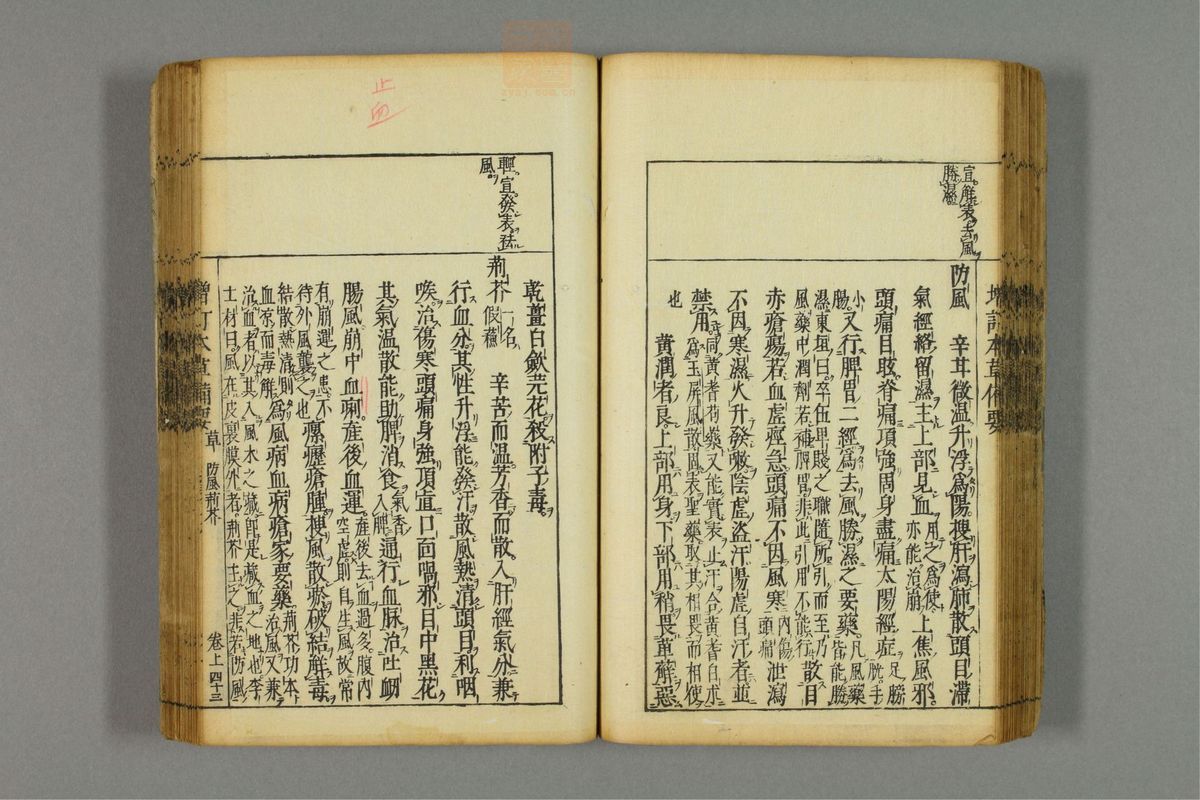 增訂本草備要
宣解表去風
勝濕
防風　辛甘微溫升浮爲陽搜肝瀉肺散頭目滯
氣經絡留濕主上部見血用之爲使亦能治崩上焦風邪
頭痛目眩脊痛項強周身盡痛太陽經症足膀胱手
小腸又行脾胃二經爲去風勝濕之要藥凡風藥皆能勝
濕東垣曰卒伍卑賤之職隨所引而至乃
風藥中潤劑若補脾胃非此引用不能行散目
赤瘡瘍若血虛痙急頭痛不因風寒內傷頭痛泄瀉
不因寒濕火升發嗽陰虛盜汗陽虛自汗者並
禁用同黃耆芍藥又能實表止汗合黃耆白朮
爲玉屏風散固表聖藥取其相畏而相使
也　黃潤者良上部用身下部用稍畏萆薢惡
乾薑白蘞芫花殺附子毒
輕宣發表祛
風
荊芥一名假蘇　辛苦而溫芳香而散入肝經氣分兼
行血分其性升浮能發汗散風熱清頭目利咽
喉治傷寒頭痛身強項直口面喎邪目中黑花
其氣溫散能助脾消食氣香入脾通行血脉治吐衄
腸風崩中血痢產後血運產後去血過多腹內空虛則自生風故常
有崩運之患不
待外風襲之也瘰癧瘡腫搜風散瘀破結解毒
結散熱清則
血凉而毒解爲風病血病瘡家要藥荊芥功本治風又兼
治血者以其入風木之臟卽是藏血之地也李
士材曰風在皮裏膜外者荊芥主之非若防風
增訂本草備要　草　防風荊芥　卷上　四十三
止血